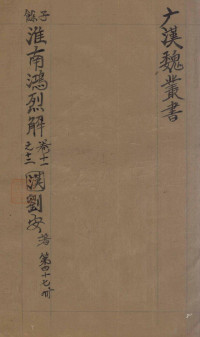 广漢魏叢書
子餘
淮南鴻烈解
卷十一
之十二
漢劉安
著
第四十七冊